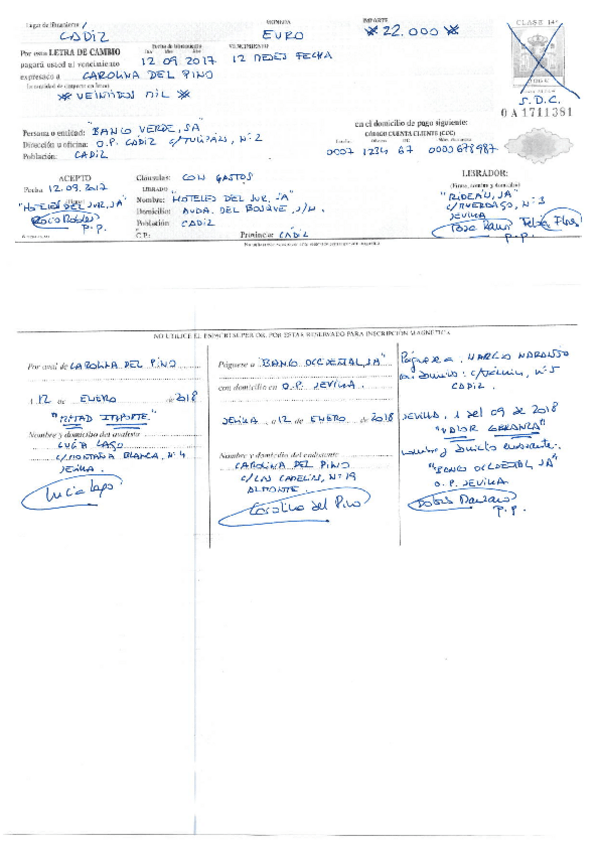 Lugar de libramiento
CADIZ
MONEDA
EURO
IMPORTE
* 22.000 *
CLASE 14ª
Por esta LETRA DE CAMBIO
pagará usted al vencimiento
expresado a
Fecha de libramiento
12 09 2017
VENCIMIENTO
12 MESES FECHA
CAROLINA DEL PINO
* VEINTIDOS MIL *
S.D.C.
0 A 1711381
en el domicilio de pago siguiente:
CÓDIGO CUENTA CLIENTE (CCC)
Persona o entidad: "BANCO VERDE, SA"
Dirección u oficina: O.P. CADIZ C/TULIPÁN, Nº 2
Población: CADIZ
0007 1234 67 0003678987
ACEPTO
Fecha 12.09.2017
"HOTELES DEL SUR, SA"
Rocío Robles
P.P.
Cláusulas: CON GASTOS
LIBRADO
Nombre: "HOTELES DEL SUR, SA"
Domicilio: AVDA. DEL BOSQUE, S/N.
Población: CADIZ
C.P.: Provincia: CADIZ
LIBRADOR:
(Firma, nombre y domicilio)
SEVILLA
P.P.
NO UTILICE EL ESPACIO SUPERIOR, POR ESTAR RESERVADO PARA INSCRIPCION MAGNETICA
Por aval de CAROLINA DEL PINO
A 12 de ENERO de 2018
"MITAD IMPORTE"
Nombre y domicilio del avalista
LUCÍA LAGO
C/MONTAÑA BLANCA, Nº 4
SEVILLA
Lucía Lago
Páguese a "BANCO OCCIDENTAL, SA"
con domicilio en O.P. SEVILLA
SEVILLA, a 12 de ENERO de 2018
Nombre y domicilio del endosante
CAROLINA DEL PINO
ALMONTE
Carolina del Pino
Páguese a MARCIO
CADIZ
SEVILLA, 1 del 09 de 2018
"VALOR GARANTÍA"
nombre y domicilio endosante:
"BANCO OCCIDENTAL, SA"
O.P. SEVILLA
P.P.